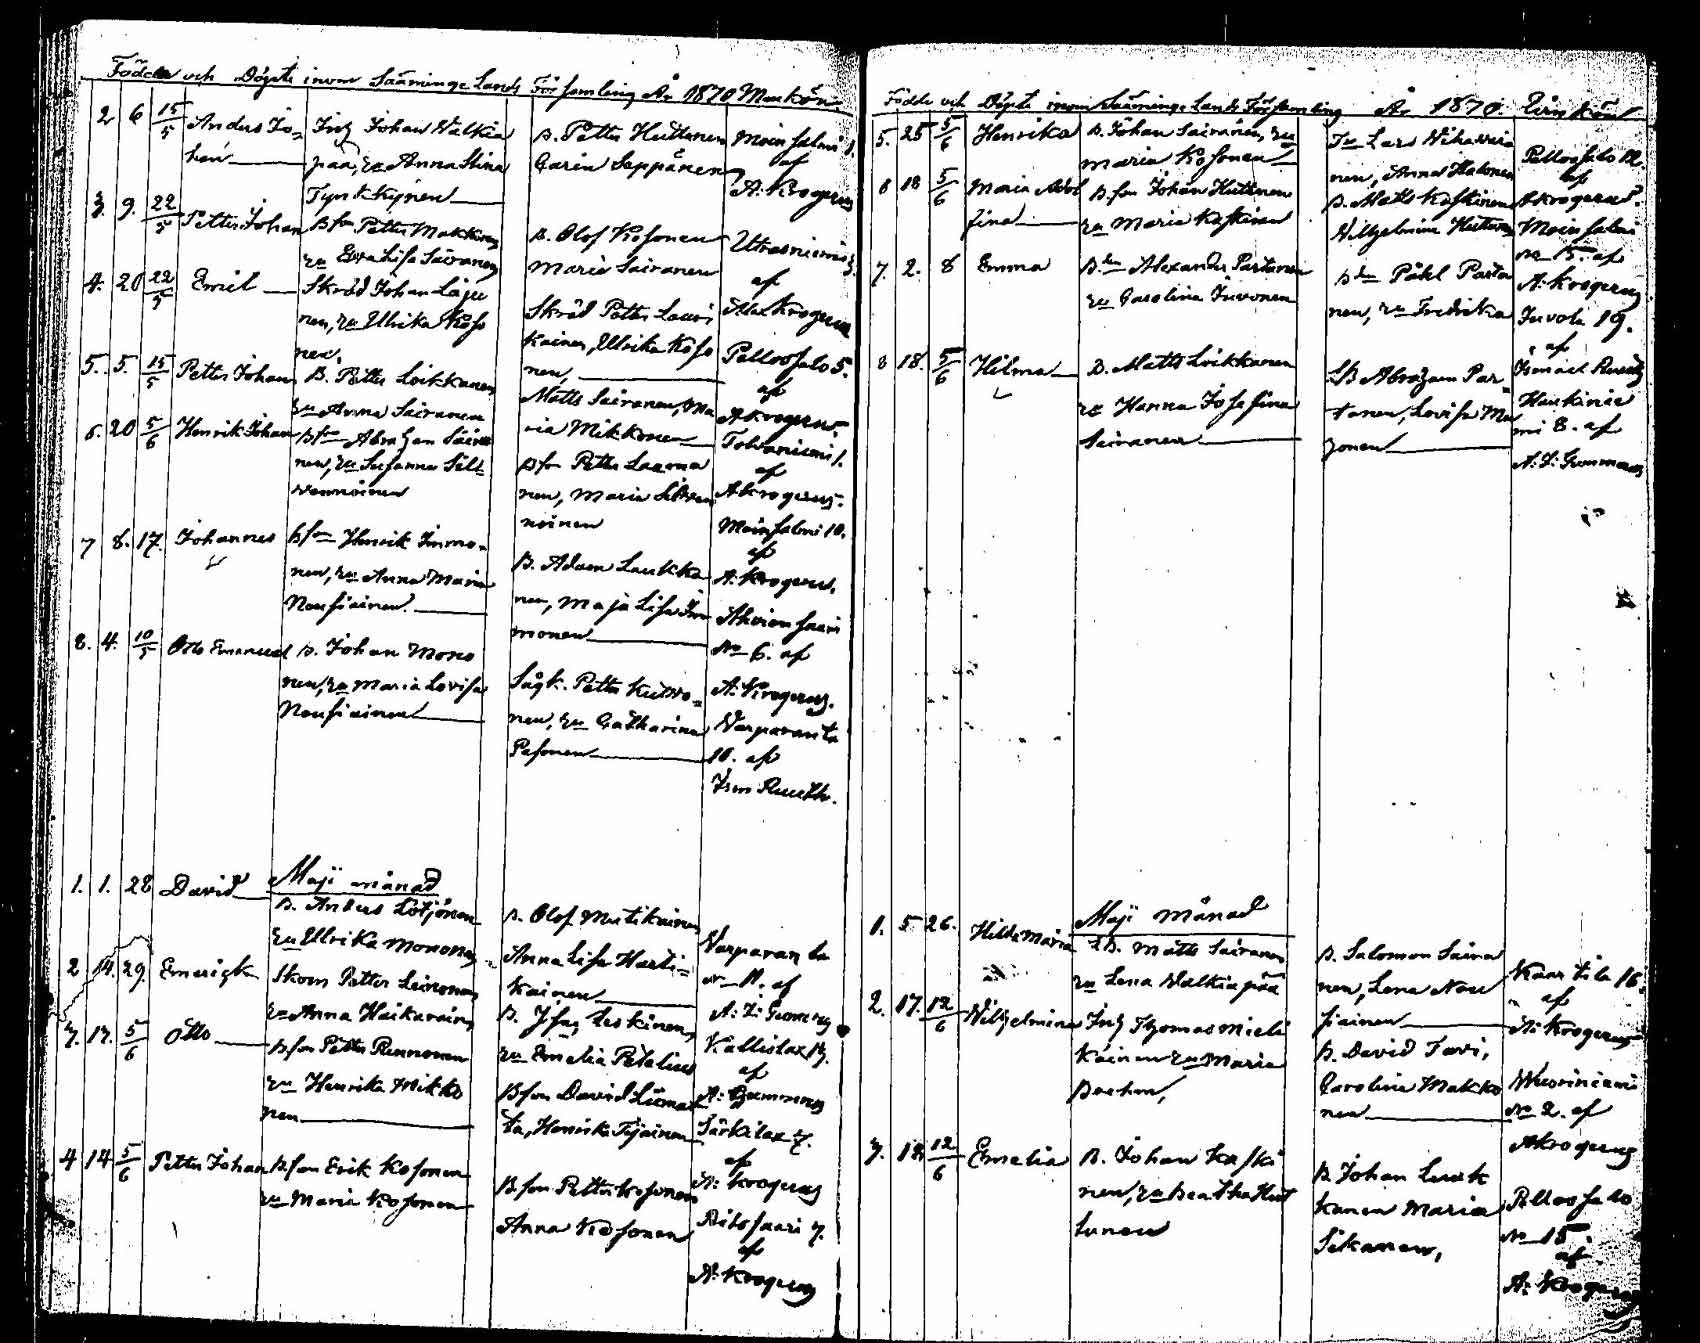 Födde och Döpte inom Sääminge Lands Församling År 1870 Mankön
2 6 15/5 Anders Jo-
han
Johan Walkia
pää, Anna Stina
Tynkkynen
B. Petter Huttunen
Carin Seppänen
Moinsalmi 1.
af
A. Krogerus
3. 9. 22/5 Petter Johan
Bson Petter Makkonen
Eva Lisa Sairanen
B. Olof Kosonen
Maria Sairanen
Utrasniemi 3.
af
A. Krogerus
4. 20 22/5 Emil
Johan Laju
nen, Ulrika Koso
nen.
Petter Lauri
kainen, Ulrika Koso
nen,
Pellossalo 5.
af
A. Krogerus
5. 5. 15/5 Petter Johan
B. Petter Loikkanen
Anna Sairanen
Matts Sairanen, Ma
ria Mikkonen
Tolvaniemi 1.
af
A. Krogerus.
6. 20 5/6 Henrik Johan
Bson Abraham Saira
nen, Susanna Sil-
vennoinen
Bson Petter Laama
nen, Maria Silven
noinen
Moinsalmi 10.
af
A. Krogerus.
7 8. 17. Johannes
Bson Henrik Immo-
nen, Anna Maria
Nousiainen
B. Adam Laukka
nen, Maja Lisa Im
monen
Ahvionsaari
No 6. af
A. Krogerus.
8. 4. 10/5 Otto Emanuel
B. Johan Mono
nen, Maria Lovisa
Nousiainen
Petter Kutvo-
nen, Catharina
Pasonen
Varparanta
10. af
Ism Rueth.
Maji månad
1. 1. 28 David
B. Anders Lötjönen
Ulrika Mononen
B. Olof Mutikainen
Anna Lisa Harti-
kainen
Varparanta
No 11. af
2 14. 29. Emerigk
Petter Leinonen
Anna Haikarainen
B. Leskinen,
Emelia Petelius
Kallislax 13.
af
A. Gummerus
3. 17. 5/6 Otto
Bson Petter Pennanen
Henrika Mikko
nen
Bson David Liima
ta, Henrika Tijainen
Särkilax 7.
af
A. Krogerus
4 14 5/6 Petter Johan
Bson Erik Kosonen
Maria Kosonen
Bson Petter Kosonen
Anna Kosonen
Ritosaari 7.
af
A. Krogerus
Födde och Döpte inom Sääminge Lands Församling År 1870. Qvinkön
5. 25 5/6 Henrika
B. Johan Sairanen,
Maria Kosonen
Lars Wihavai
nen, Anna Halonen
Pellossalo 12
af
A. Krogerus.
6 18 5/6 Maria Adol
fina
Bson Johan Huttunen
Maria Koskinen
B. Matts Koskinen
Wilhelmina Huttunen
Moinsalmi
No 15. af
A. Krogerus
7. 2. 8 Emma
Alexander Partanen
Carolina Juvonen
Påhl Parta
nen, Fredrika
Juvola 19.
af
Ismael Rueth
8 18. 5/6 Hilma
B. Matts Loikkanen
Hanna Josefina
Sairanen
Abraham Par-
tanen, Lovisa Ma
jonen
Haukinie
mi 8. af
A. F. Gummerus
Maji månad
1. 5 26. Hilda Maria
Matts Sairanen
Lena Walkiapää
B. Salomon Saira
nen, Lena Nou
siainen
Kaartila 16.
af
A. Krogerus
2. 17. 12/6 Wilhelmina
Thomas Mieli
käinen Maria
B. David Tavi,
Carolina Makko
nen
Wuoriniemi
No 2. af
A. Krogerus
3. 18. 12/6 Emelia
B. Johan Kaski
nen, Beatha Hut
tunen
B. Johan Luuk
kanen Maria
Sikanen,
Pellossalo
No 15.
af
A. Krogerus